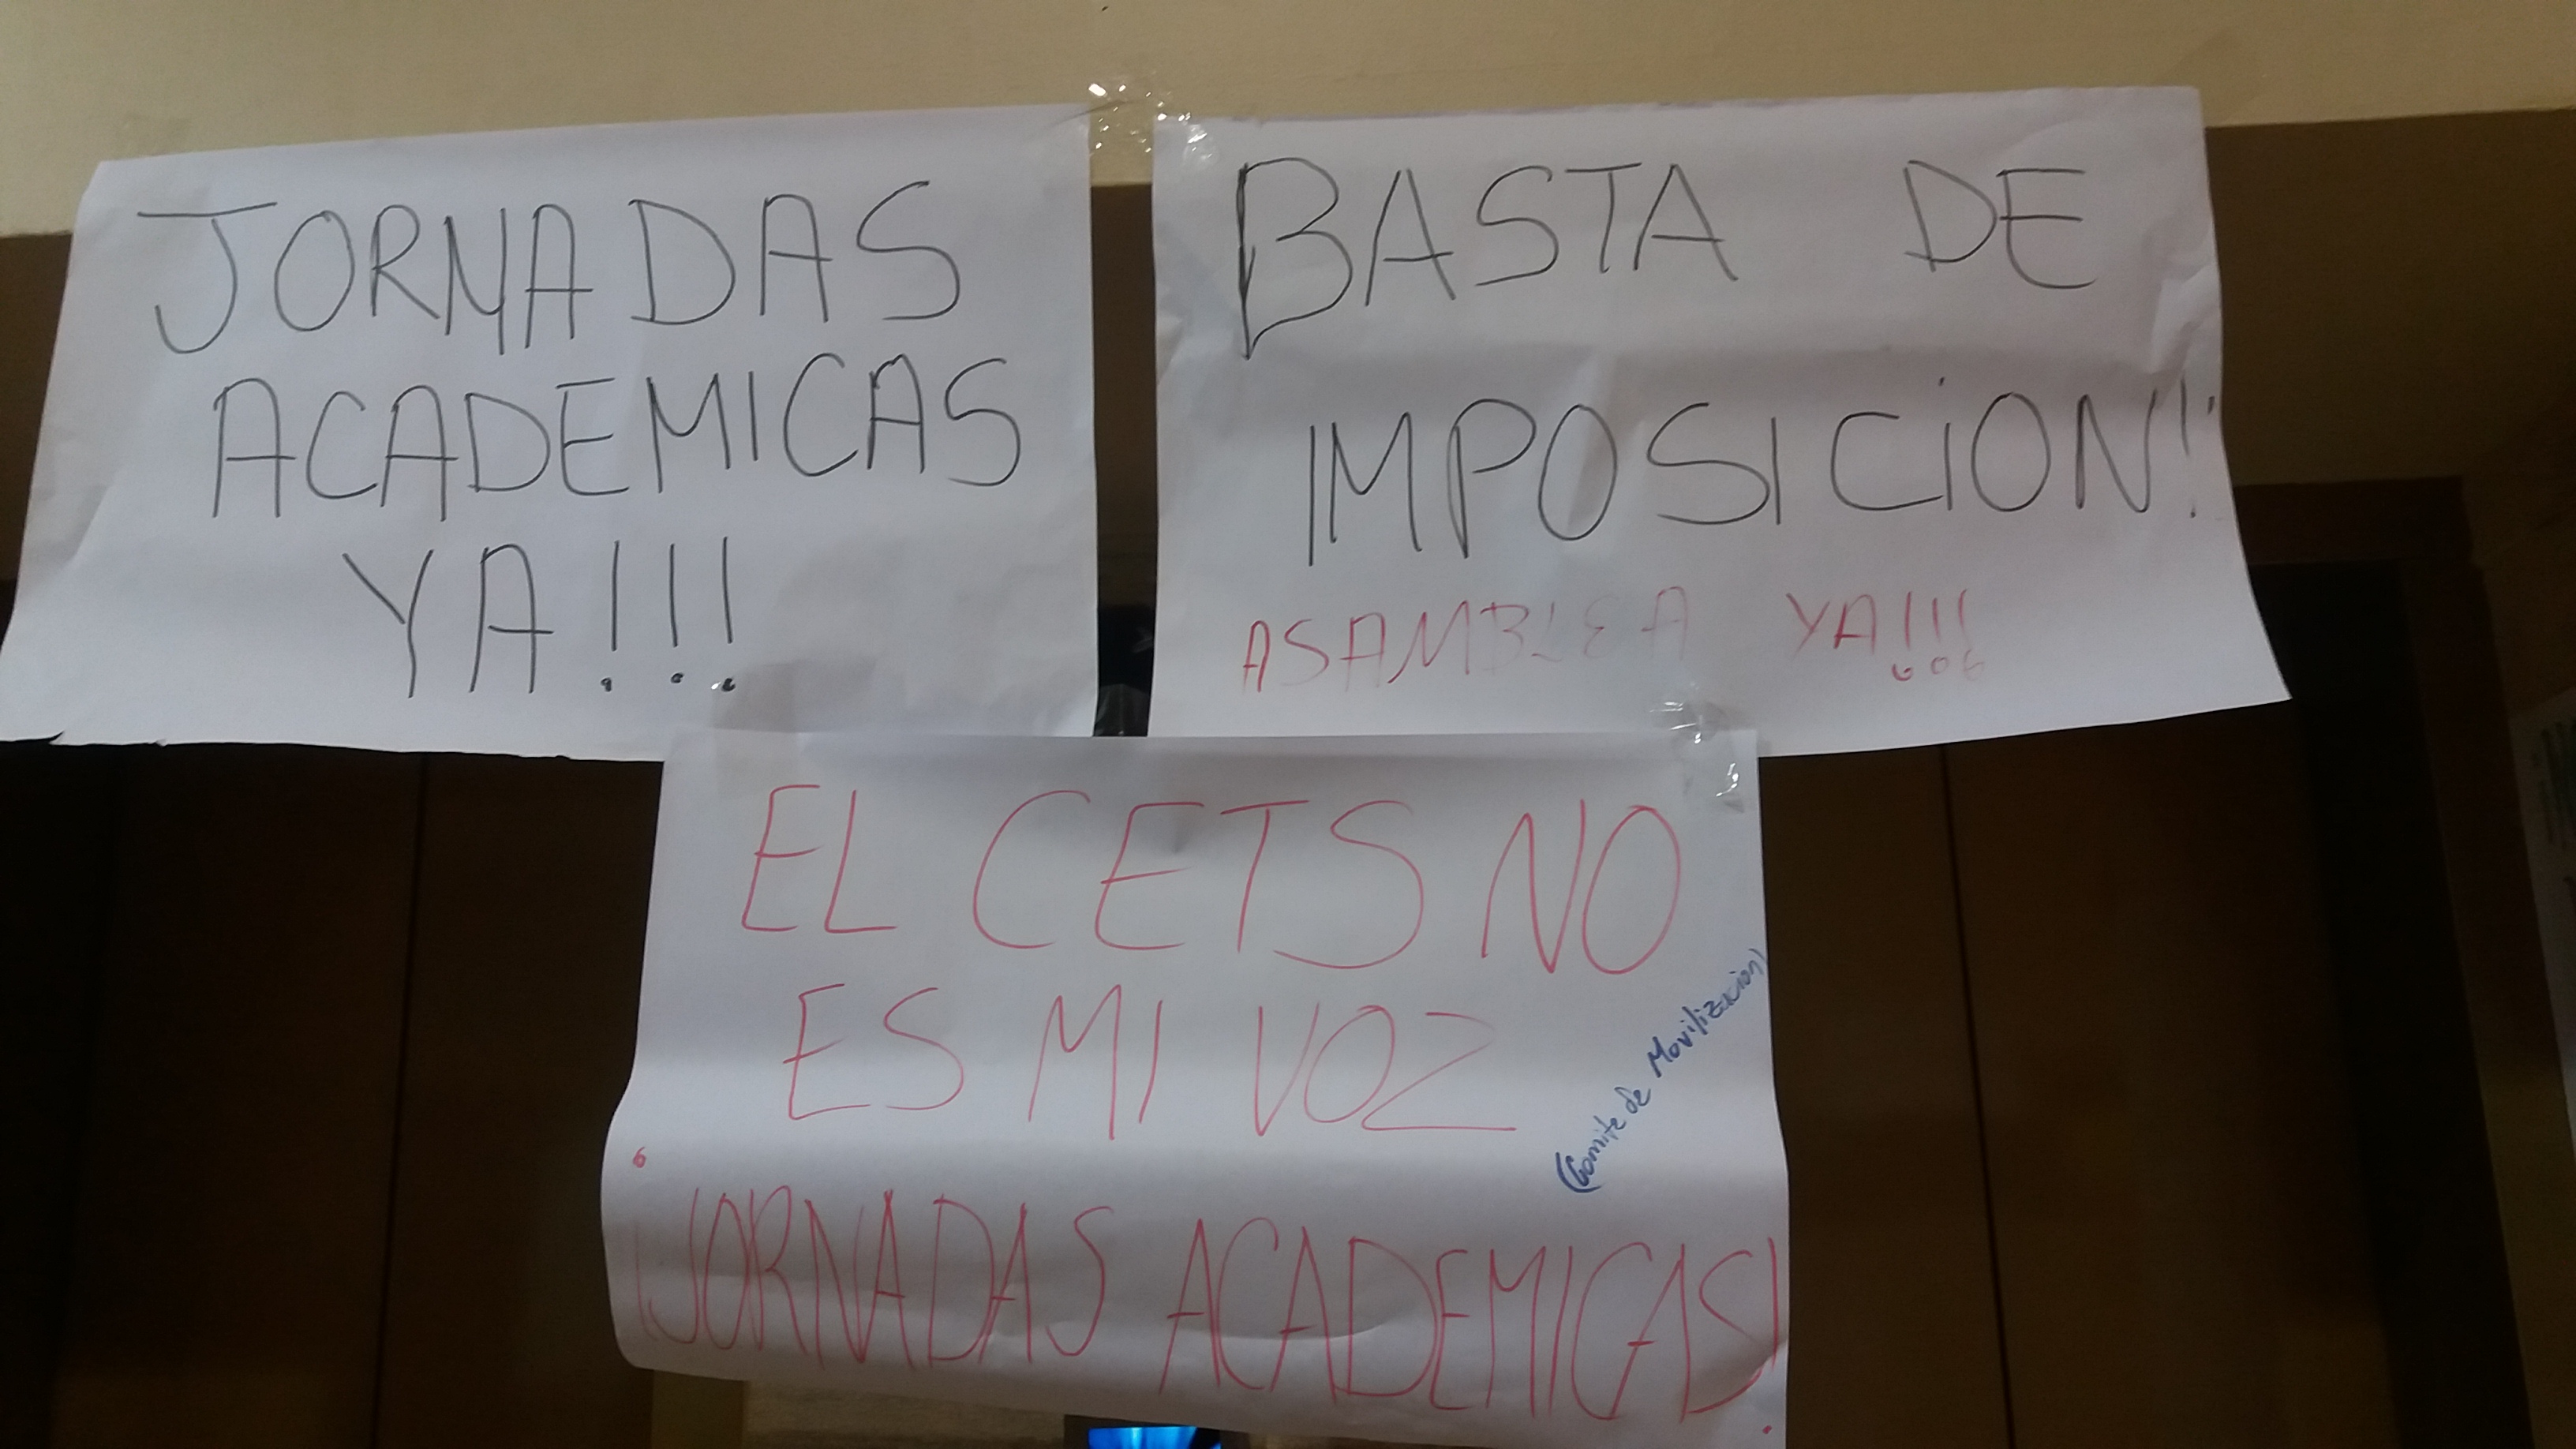 JORNADAS
ACADEMICAS
YA!!!
BASTA DE
IMPOSICION!
ASAMBLEA YA!!!
EL CETS NO
ES MI VOZ
(Comite de Movilizacion)
¡JORNADAS ACADEMICAS!